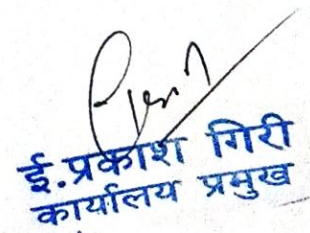 ई.प्रकाश गिरी
कार्यालय प्रमुख